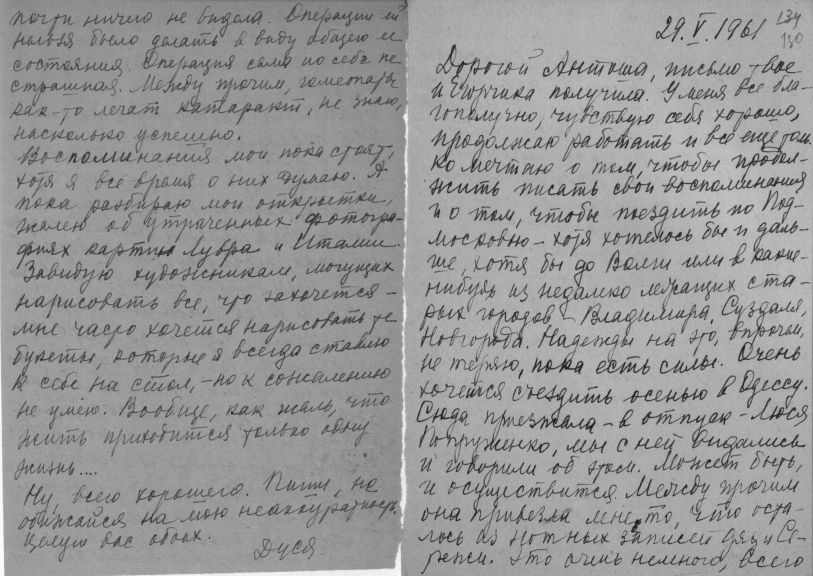 почти ничего не видела. Операции ей
нельзя было делать в виду общего ее
состояния. Операция сама по себе не
страшная. Между прочим, гомеопаты
как-то лечат катаракт, не знаю,
насколько успешно.
Воспоминания мои пока стоят,
хотя я все время о них думаю. Я
пока разбираю мои открытки,
жалею об утраченных фотогра-
фиях картин Лувра и Италии.
Завидую художникам, могущих
нарисовать все, что захочется –
мне часто хочется нарисовать те
букеты, которые я всегда ставлю
к себе на стол, – но к сожалению
не умею. Вообще, как жаль, что
жить приходится только одну
жизнь....
Ну, всего хорошего. Пиши, не
обижайся на мою неаккуратность.
Целую вас обоих.
Дуся
29.V.1961
134
130
Дорогой Антоша, письмо твое
и Игорчика получила. У меня все бла-
гополучно, чувствую себя хорошо,
продолжаю работать и все еще толь-
ко мечтаю о том, чтобы продол-
жить писать свои воспоминания
и о том, чтобы поездить по Под-
московью – хотя хотелось бы и даль-
ше, хотя бы до Волги или в какие-
нибудь из недалеко лежащих ста-
рых городов – Владимира, Суздаля,
Новгорода. Надежды на это, впрочем,
не теряю, пока есть силы. Очень
хочется съездить осенью в Одессу.
Сюда приезжала – в отпуск – Люся
Попруженко, мы с ней видались
и говорили об этом. Может быть,
и осуществится. Между прочим
она привезла мне то, что оста-
лось из нотных записей дяди Се-
режи. Это очень немного, всего